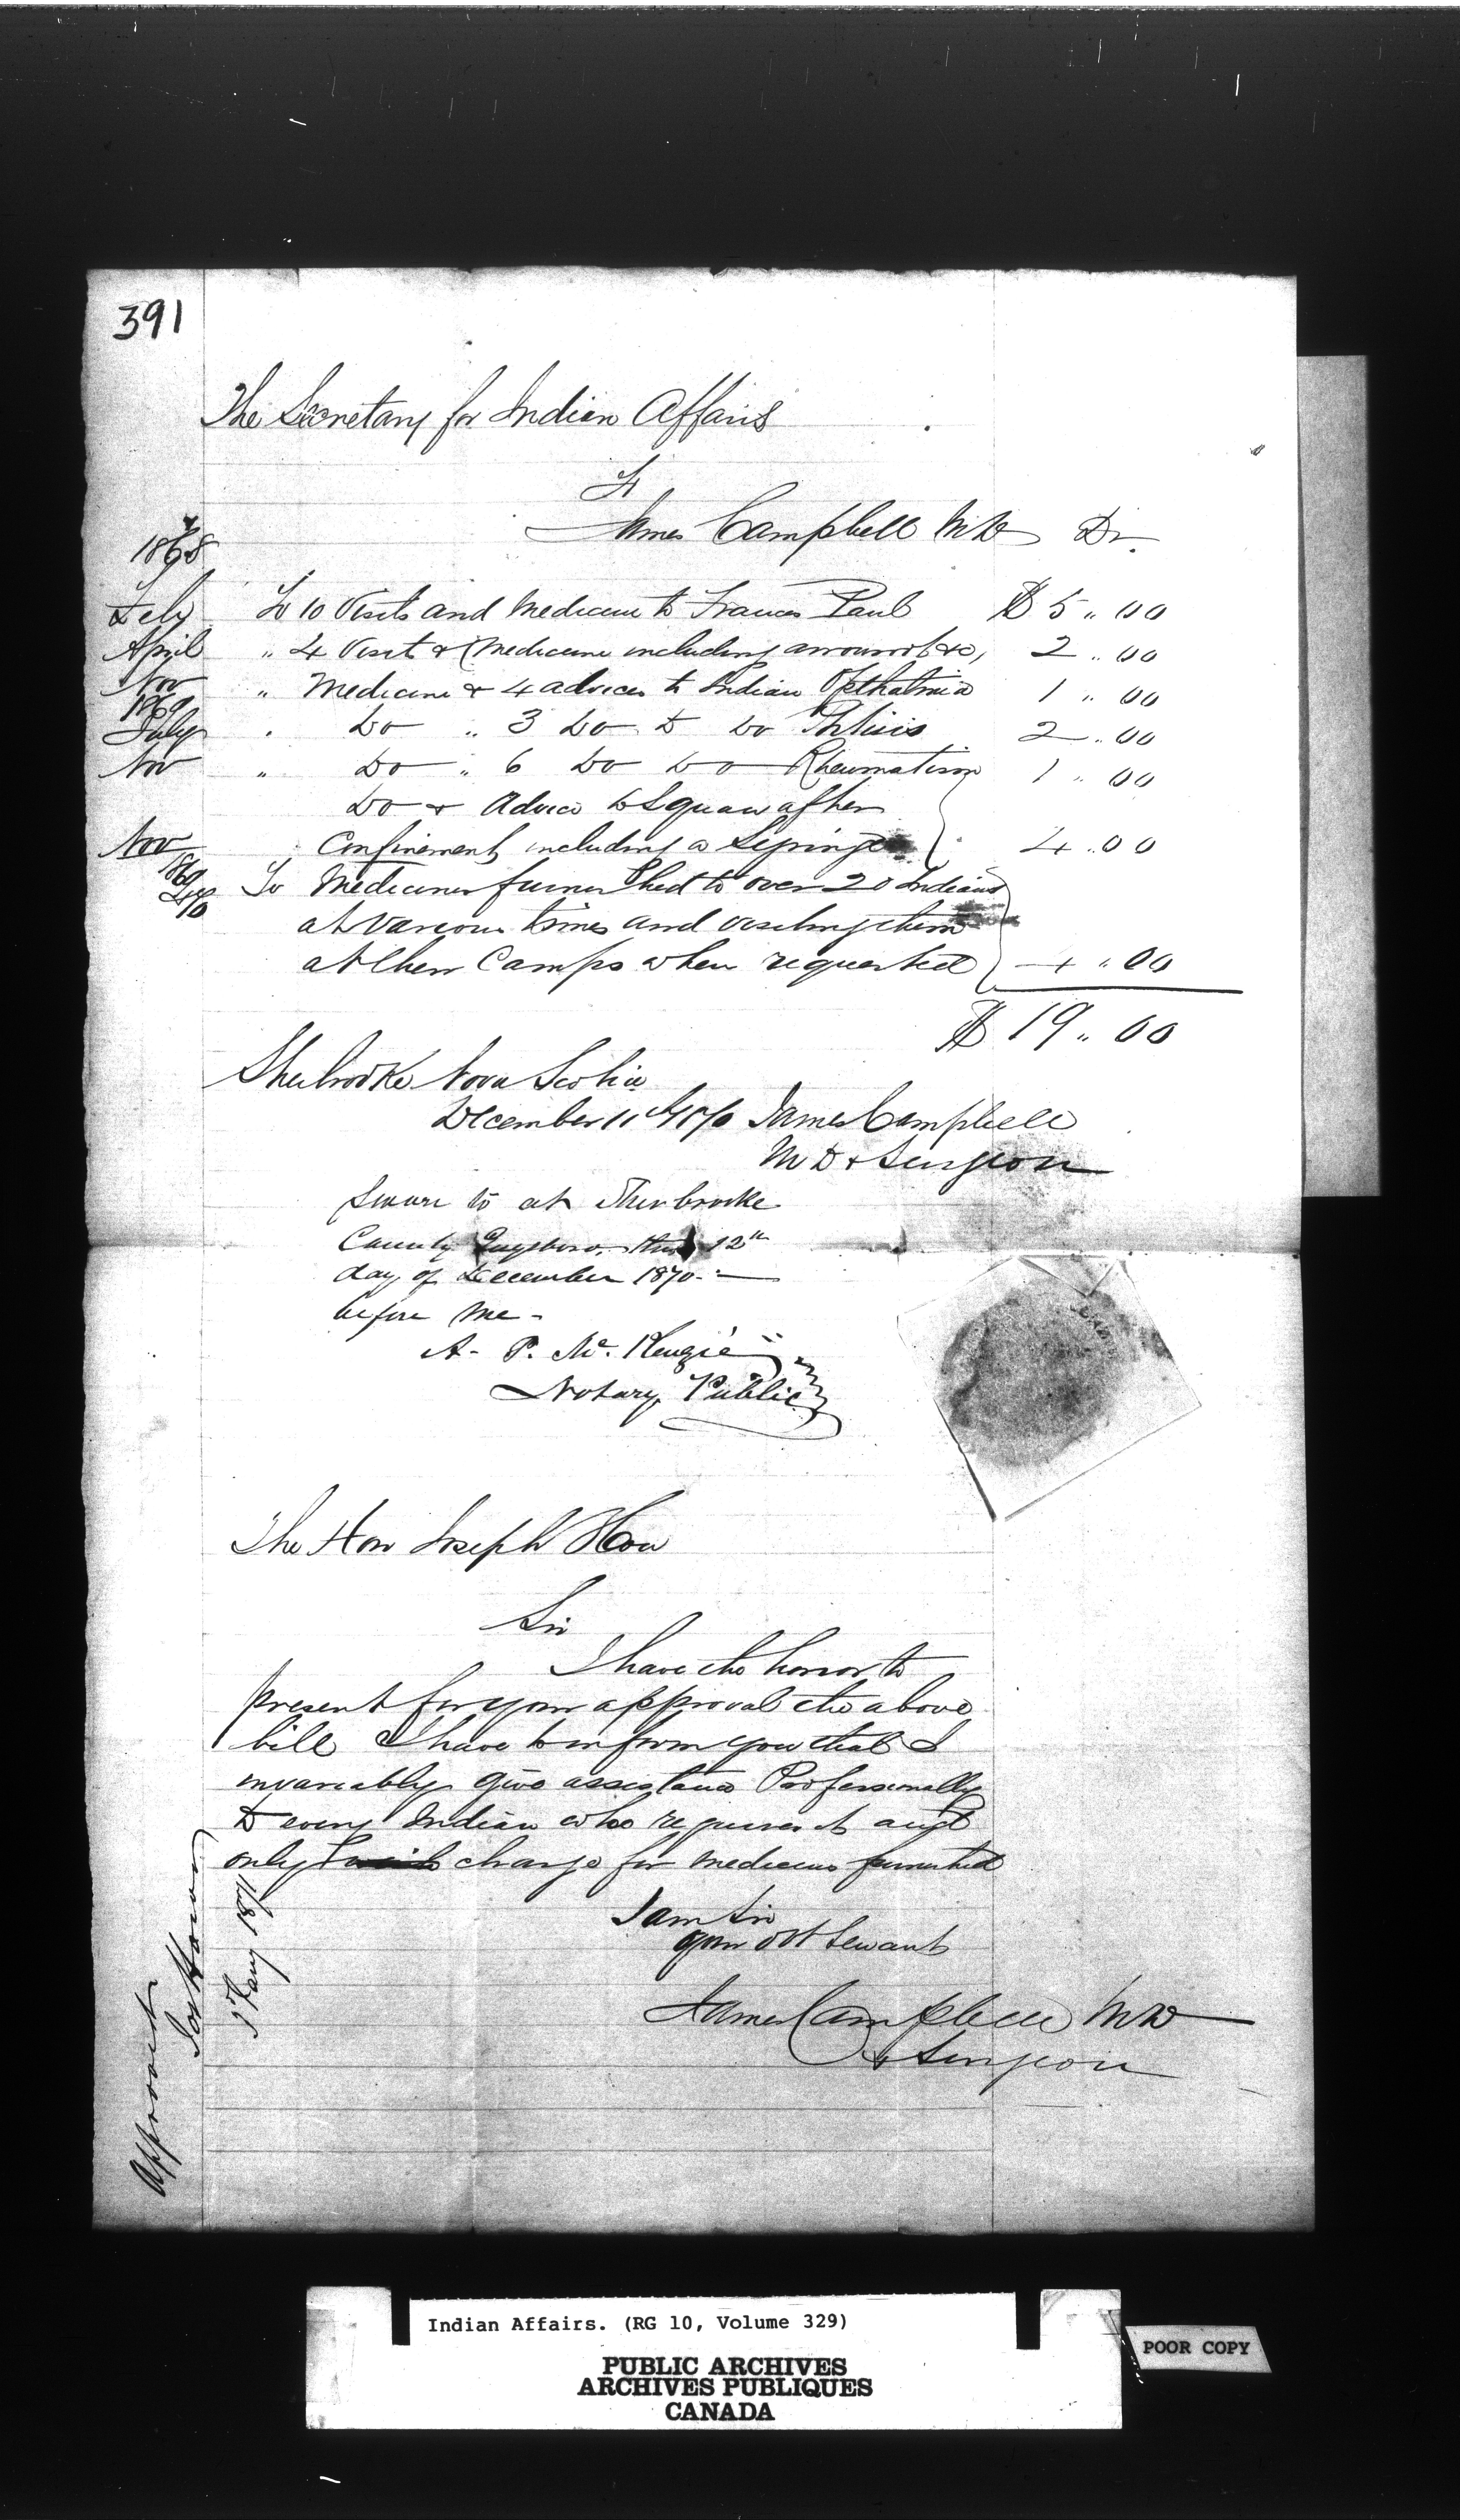 391
The Secretary for Indian Affairs
To
James Campbell MD Dr.
1868
Feby To 10 Visits and Medicine to Frances Paul $ 5 " 00
April " 4 Visit & Medicine including arrowroot &c, 2 " 00
Nov " Medicine & 4 advices to Indian Opthalmia 1 " 00
1869
July " Do " 3 Do to Do Phtisis 2 " 00
Nov " Do " 6 Do Do Rheumatism 1 " 00
Do & Advice to Squaw after
Nov Confinement including a Syringe 4 " 00
To Medicines furnished to over 20 Indians
at various times and visiting them
at their Camps when requested 4 " 00
$ 19 " 00
Sherbrooke Nova Scotia
December 11th 1870 James Campbell
MD & Surgeon
Sworn to at Sherbrooke
County Guysboro, this 12th
day of December 1870 -
before me -
A. P. Mc. Kenzie
Notary Public
The Hon Joseph How
Sir
I have the honor to
present for your approval the above
bill I have to inform you that I
invariably give assistance Professionally
to every Indian who requires it and
only charge for medicines furnished
I am Sir
your obt Servant
James Campbell MD
& Surgeon
Approved
Jos Howe
5 Jany 1871
Indian Affairs. (RG 10, Volume 329)
PUBLIC ARCHIVES
ARCHIVES PUBLIQUES
CANADA
POOR COPY